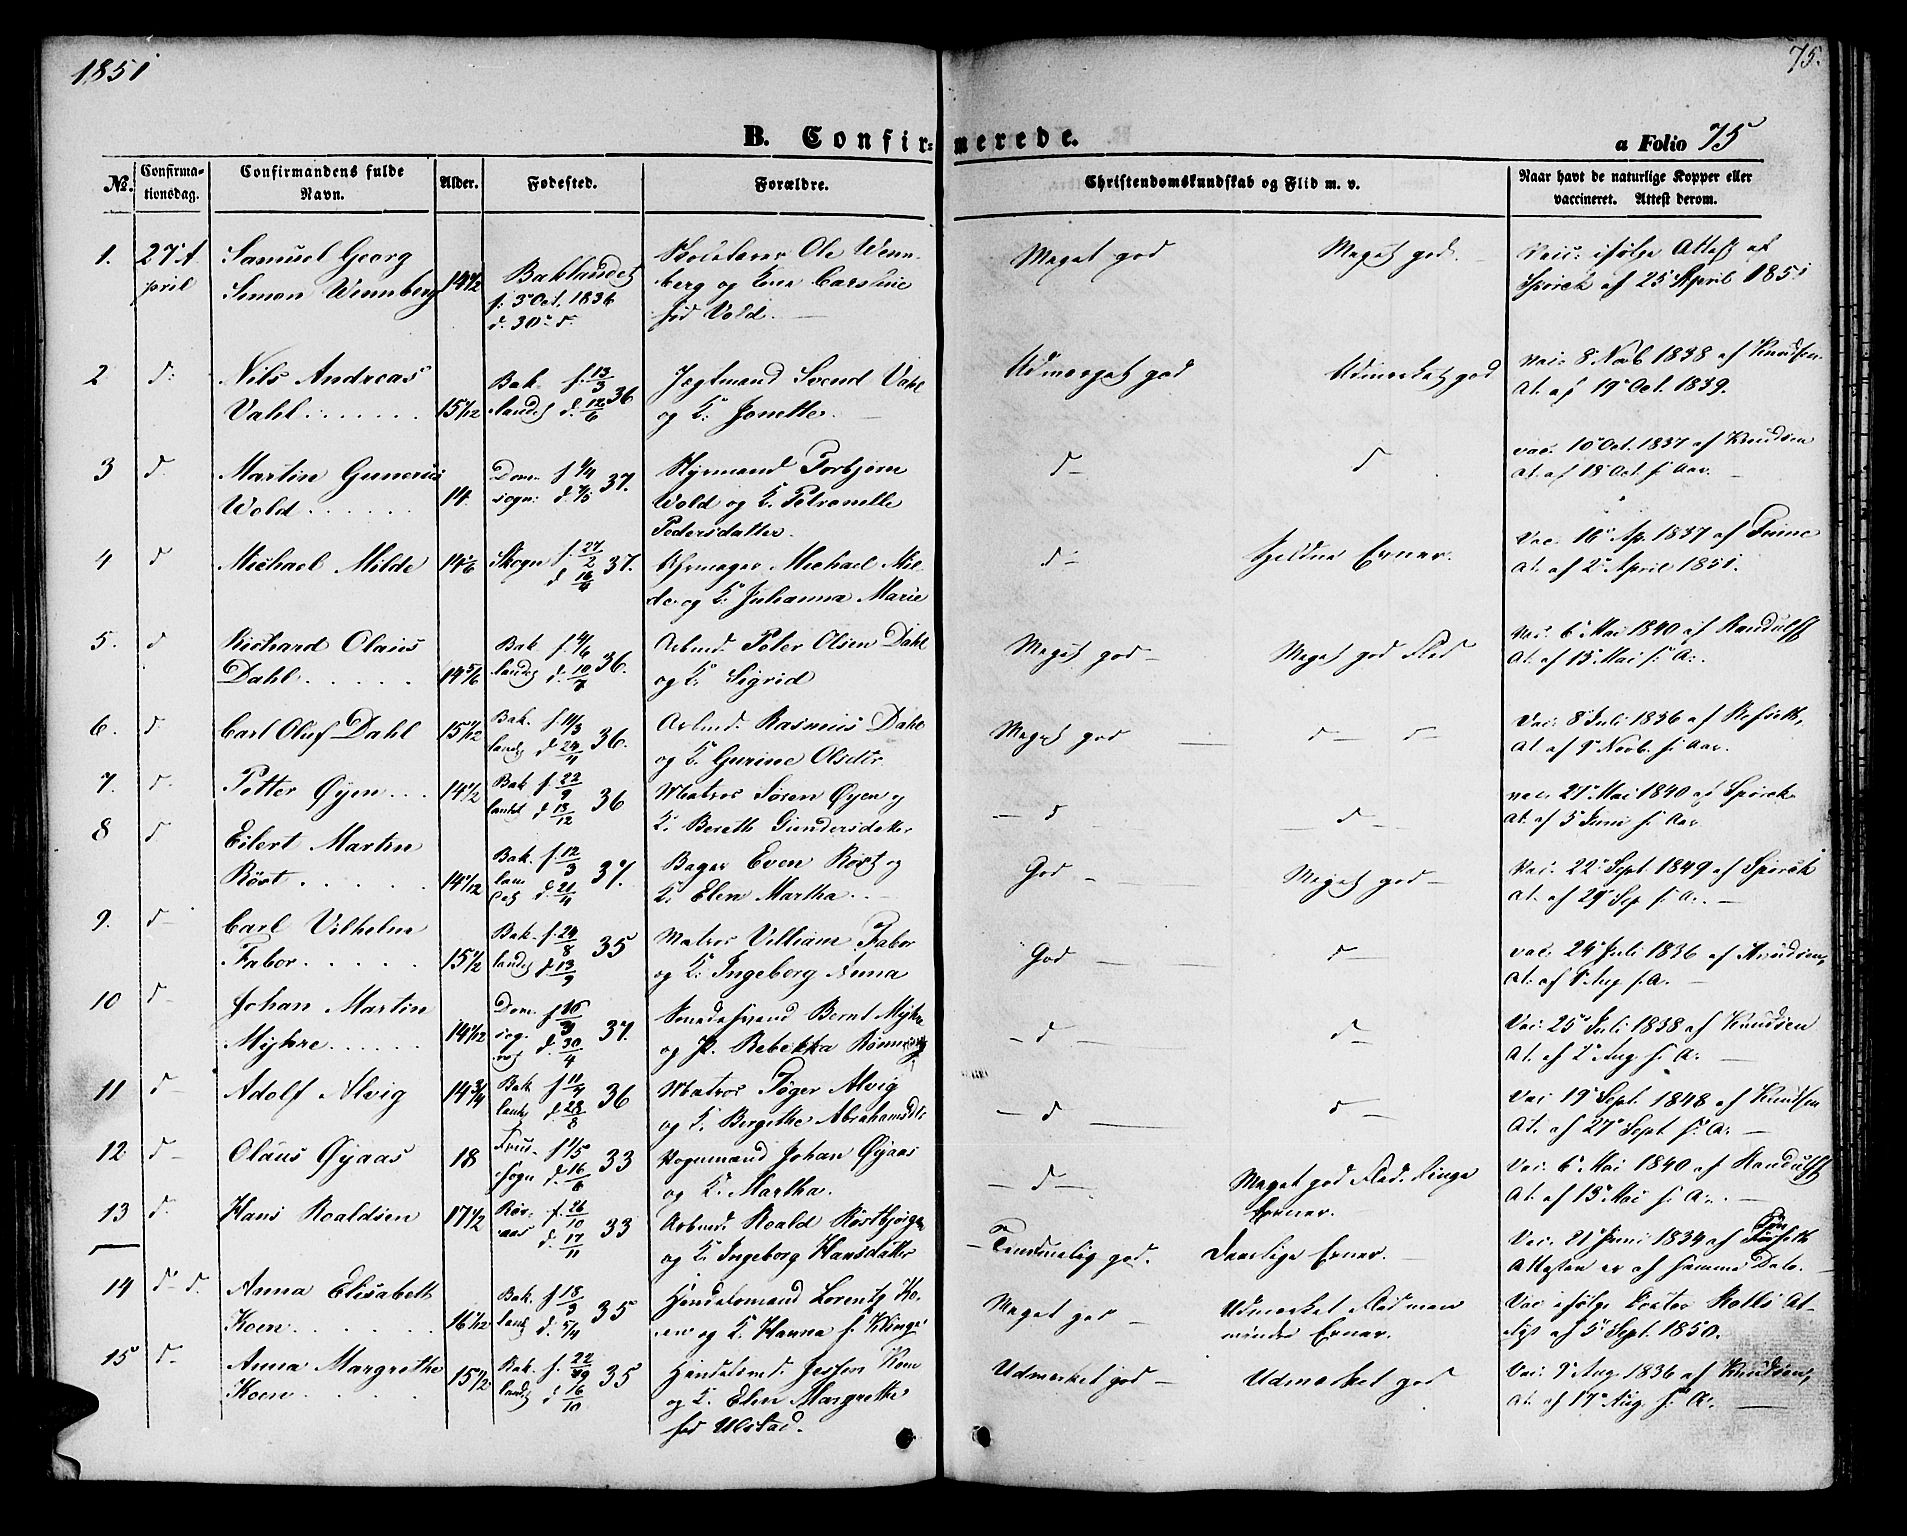 1851
75.
B. Confirmerede.
a Folio 75
No. Confirmationsdag. Confirmandens fulde Navn. Alder. Fødested. Forældre. Christendomskundskab og Flid m. v. Naar havt de naturlige Kopper eller vaccineret. Attest derom.
1. 27 April Samuel Georg
Simon Wennberg 14 1/2 Baklandet f: 3 Oct. 1836 d. 30 d.
Ole Wennberg og Kone
fød Vold.
Meget god Meget god.
ifølge Attest af
Spörck af 25 April 1851
2 d: Nils Andreas
Vahl 15 1/12 Baklandet f. 13/3 d. 12/6 36
Jægtmand Svend Vahl
og K: Jonette.
Udmærget god Udmærket god
Vac: 8 Novb. 1838 af Knudsen
At. af 19 Oct. 1839.
3 d Martin Gunerius
Wold 14 Domsogn: f 4/4 d. 7/5 37.
Styrmand Torbjørn
Wold og K. Petronelle
Pedersdatter.
d d
vac. 10 Oct. 1837 af Knudsen
At. af 18 Oct. s: Aar.
4 d Michael Milde 14 1/6 Skogn f. 27/2 d 16/4 37.
Michael Milde og K: Johanna Marie
d: Evner.
Vac. 16 Ap. 1837 af
At. af 2 April 1851.
5. d Richard Olaus
Dahl 14 5/6 Baklandet f 4/6 d. 10/7 36.
Arbmd. Peter Olsen Dahl
og K: Sigrid
Meget god Meget god Flid
Vac. 6 Mai 1840 af Randulff
At. af 13 Mai s: A:.
6. d Carl Oluf Dahl 15 1/12 Baklandet f 11/3 d. 24/4 36.
Arbmd. Rasmus Dahl
og K Gurine Olsdtr.
Meget god d d
Vac: 8 Juli 1836 af
At. af 9 Novb. s: Aar.
7. d. Petter Øyen 14 1/2 Baklandet f. 22/9 d. 13/12 36
Matros Søren Øyen og
K. Bereth Gundersdatter
d d
vac. 21 Mai 1840 af Spörck
At. af 5 Juni s: Aar
8 d Eilert Martin
Röst 14 1/12 Baklandet f. 12/3 d. 21/4 37.
Bager Even Röst og
K. Elen Martha.
God Meget god
Vac: 22 Sept. 1849 af Spörck
At. af 29 Sep s: A.
9. d Carl Vilhelm
Faber 15 1/2 Baklandet f. 24/8 d. 13/9 35
Matros Villiam Faber
og K: Ingeborg Anna
God d
vac. 24 Juli 1836 af Knudsen,
At. af 8 Aug s. A.
10 d Johan Martin
Myhre 14 1/12 Domsognet f 30/3 d. 30/4 37.
Bernt Myhre
og K. Rebekka
d d
Vac: 25 Juli 1838 af Knudsen
At. af 2 Aug s: A:
11 d Adolf Alvig 14 3/4 Baklandet f 11/7 d. 28/8 36
Matros Töger Alvig
og K. Bergithe Abrahamsdtr
d d
Vac 19 Sept. 1848 af Knudsen
At. af 27 Sept s: A:
12: d Olaus Øyaas 18 Fruesogn f 1/5 d. 16/6 33
Vognmand Johan Øyaas
og K. Martha.
d Meget god Flid. Ringe
Evner.
Vac: 6 Mai 1840 af Randulff
At. af 13 Mai s: A:.
13 d. Hans Roaldsen 17 1/2 Röraas f. 26/10 d. 17/11 33
Arbmd: Roald
og K Ingeborg Hansdatter
Temmelig god. Daarlige Evner.
Vac: 21 Juni 1834 af
Attesten er af samme Dato.
14 d d. Anna Elisabeth
Koen 16 1/12 Baklandet f. 18/3 d. 5/4 35
Handelsmand Lorentz Koen og K. Hanna f. Klinge
Meget god Udmærket Flid men
mindre Evner.
Vac ifølge Doctor Attest af 5 Sept. 1850.
15 d Anna Margrethe
Koen 15 1/2 Baklandet f. 22/9 d 16/10 35
Handelsmd. Koen
og K. Elen Margrethe
fød Ulstad.
Udmærket god Udmærket god
Vac: 9 Aug 1836 af Knudsen,
At. af 17 Aug s: A:.